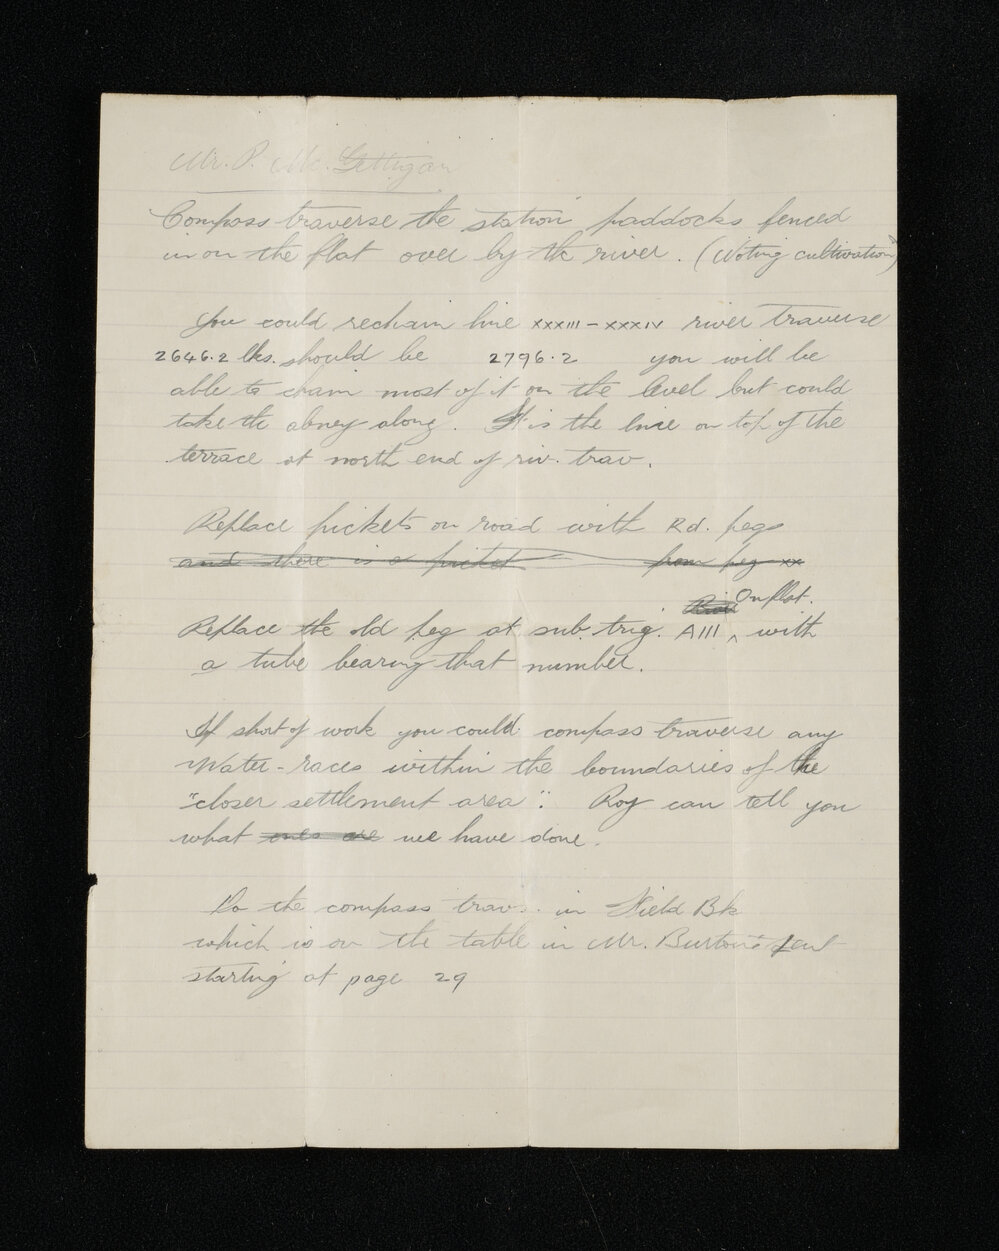 Mr. P. Mc. Gettigan
Compass traverse the station paddocks fenced
in on the flat over by the river. (Noting cultivation)
You could rechain line XXXIII - XXXIV river traverse
2646.2 lks. should be 2796.2 you will be
able to chain most of it on the level but could
take the abney along. It is the line on top of the
terrace at north end of riv. trav.
Replace pickets on road with Rd. pegs
and there is a picket from peg xx
On flat.
Replace the old peg at sub. trig. AIII ^ with
a tube bearing that number.
If short of work you could compass traverse any
Water-races within the boundaries of the
"closer settlement area". Roy can tell you
what ones are we have done.
Do the compass trav. in Field Bk
which is on the table in Mr. Burton's tent
starting at page 29